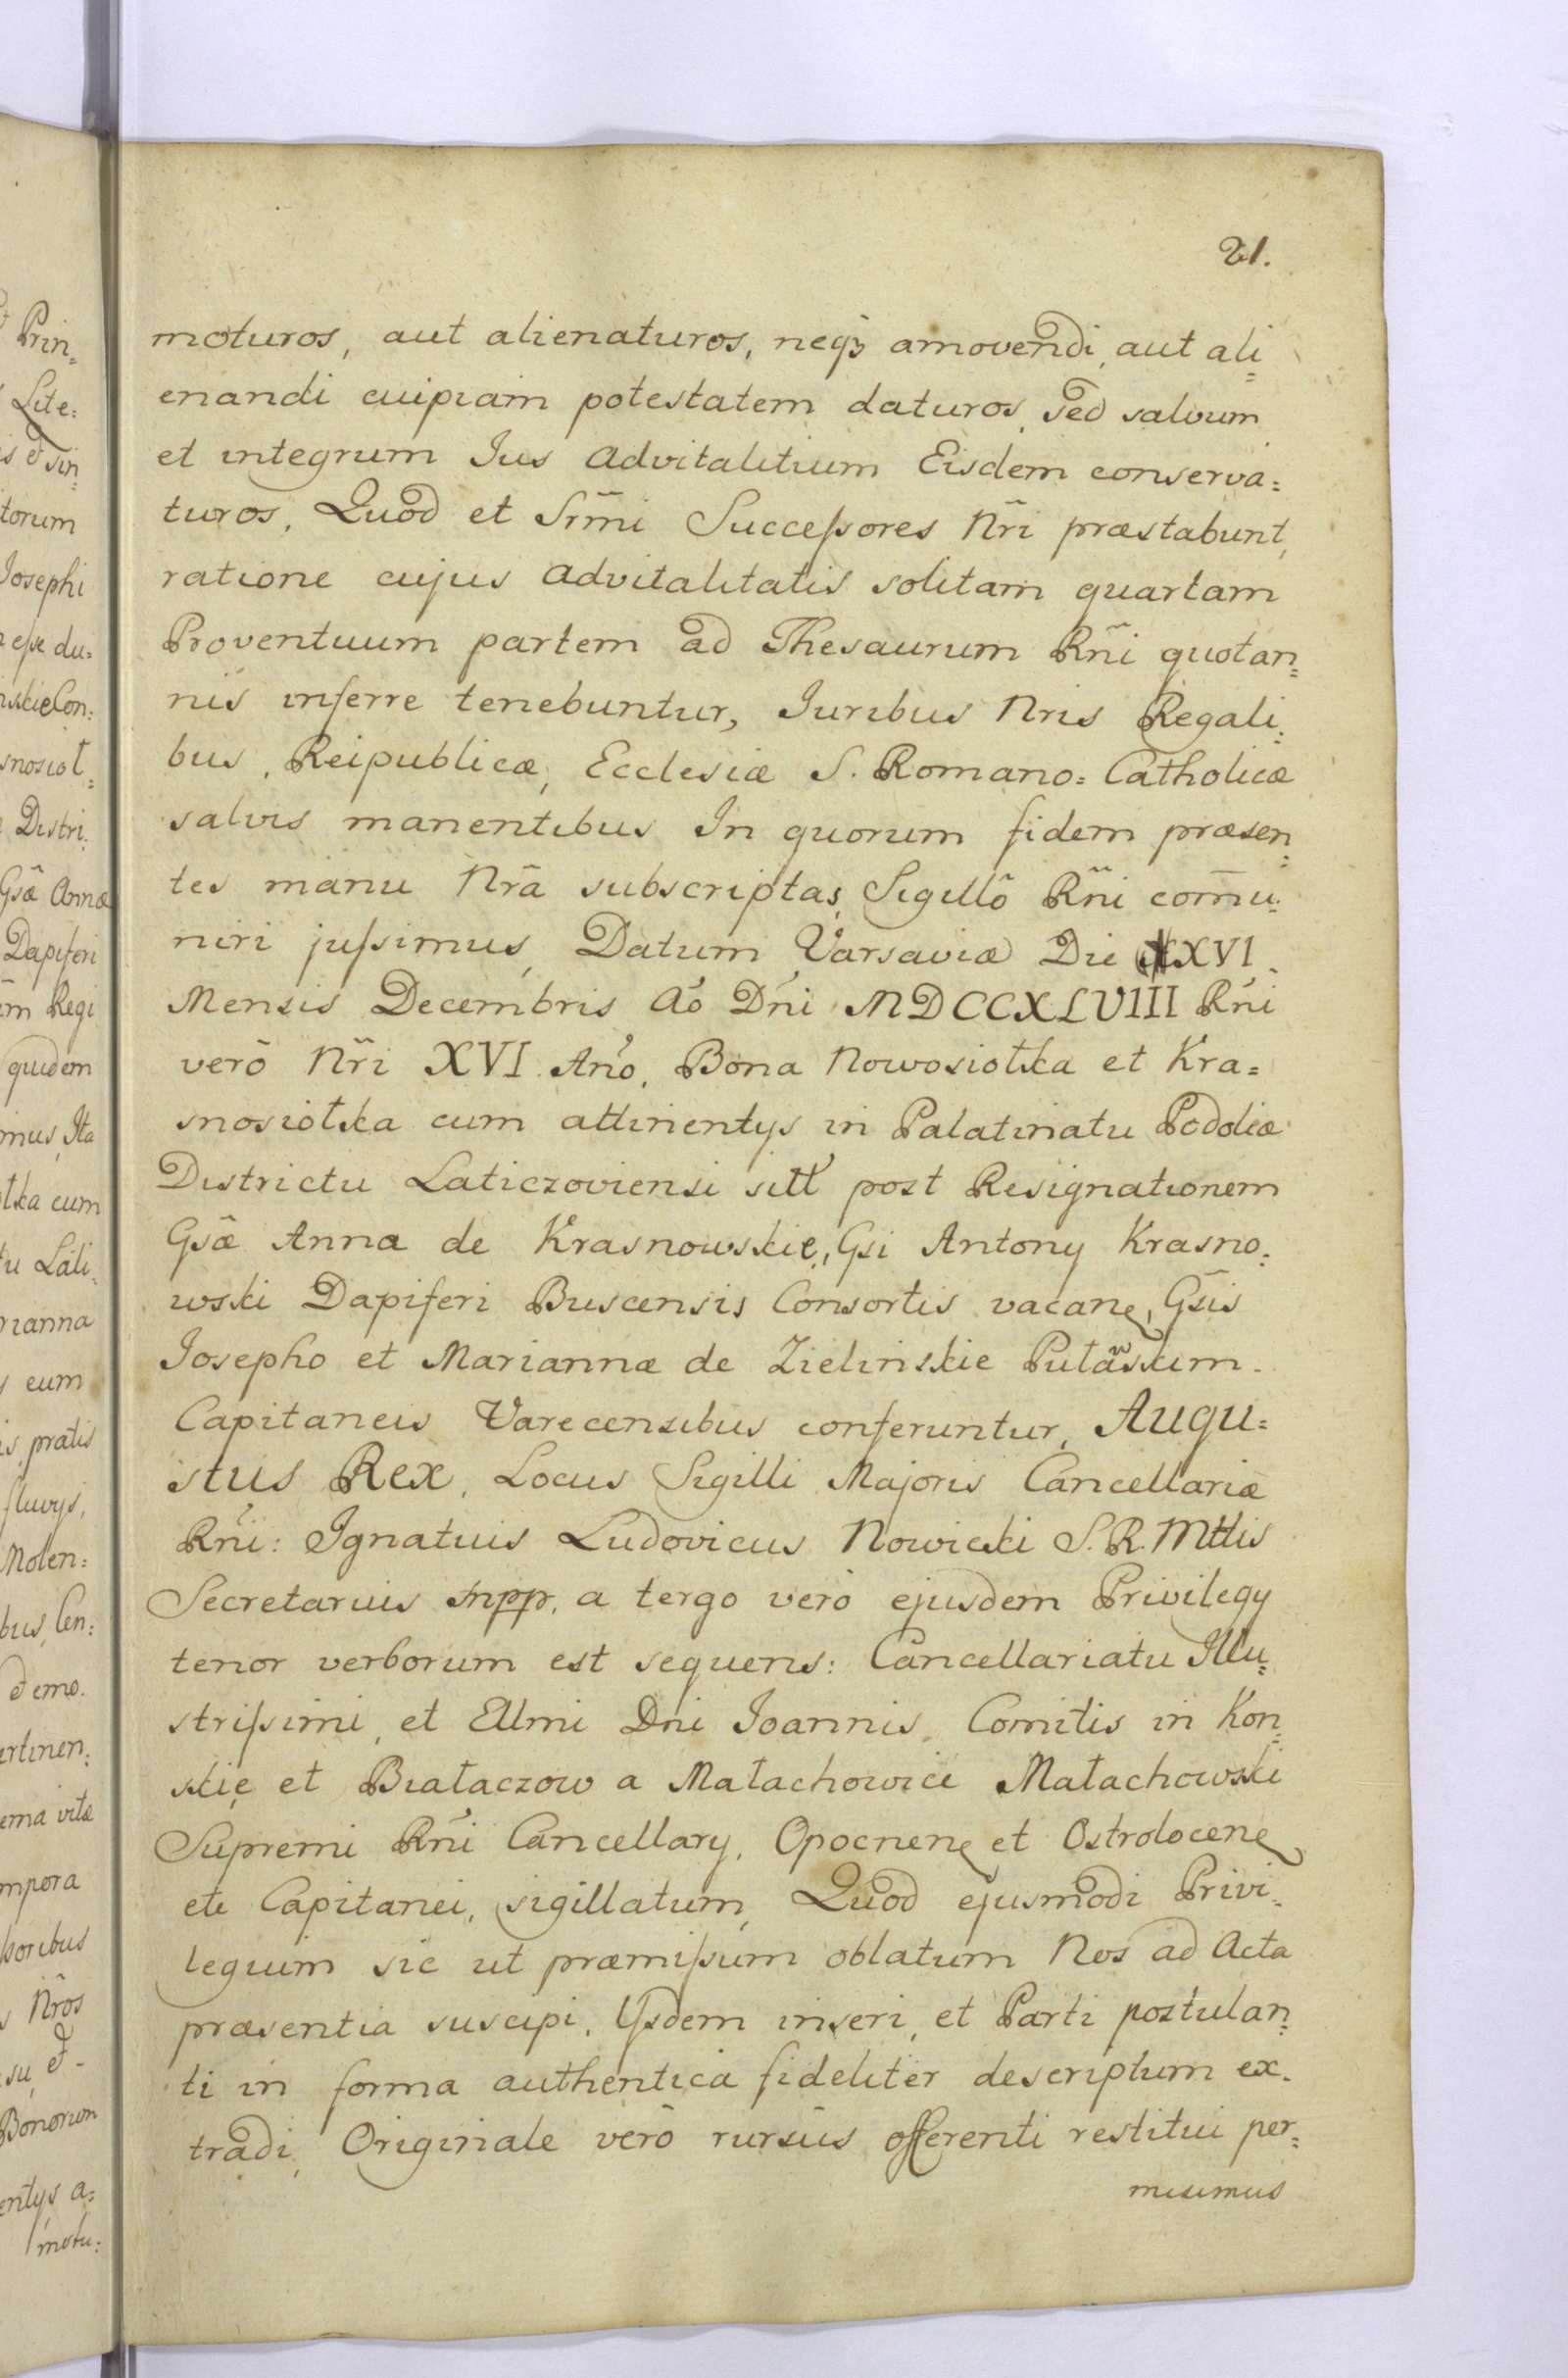 21.
moturos, aut alienaturos, neqꝫ amovendi, aut ali=
enandi cuipiam potestatem daturos, sed salvum
et integrum Jus advitalitium Eisdem conserva=
turos. Quod et Srm̃i Succeſsores Nr̃i præstabunt,
ratione cujus advitalitatis solitam quartam
Proventuum partem ad Thesaurum Rñi quotan=
nis inferre tenebuntur, Juribus Nris Regali=
bus, Reipublicæ, Ecclesiæ S. Romano=Catholicæ
salvis manentibus In quorum fidem præsen=
tes manu Nr̃a subscriptas, Sigillô Rñi com̃u=
niri juſsimus, Datum Varsaviæ Die XXVI.
Mensis Decembris Aõ Dñi MDCCXLVIII Rñi
verô Nr̃i XVI. Añõ. Bona Nowosiołka et Kra=
snosiołka cum attinentys in Palatinatu Podoliæ
Districtu Laticzoviensi sitt post Resignationem
Gsæ Anna de Krasnowskie, Gsi Antony Krasno=
wski Dapiferi Buscensis Consortis vacanꝫ, Gsis
Josepho et Mariannæ de Zielinskie Puławskim
Capitaneis Varecensibus conferuntur, Augu=
stus Rex, Locus Sigilli Majoris Cancellariæ
Rñi: Ignatuis Ludovicus Nowicki S. R. Mttis
Secretarius mpp. a tergo verò ejusdem Privilegy
tenor verborum est sequens: Cancellariatu Illu=
striſsimi, et Ellmi Dni Joannis, Comitis in Kon=
skie et Białaczow a Małachowice Małachowski
Supremi Rñi Cancellary, Opocnenꝫ et Ostrolocenꝫ
etc Capitanei, sigillatum, Quod ejusmodi Privi=
legium sic ut præmiſsum oblatum Nos ad Acta
præsentia suscipi, Ysdem inseri, et Parti postulan=
ti in forma authentica fideliter descriptum ex=
tradi, Originale verô rursûs offerenti restitui per=
misimus
Prin=
Lite:
torum
Josephi
Distri:
Gsæ Annæ
Dapiferi
quidem
rianna
eum
pratis
fluvys,
Molen:
Nr̃os
Bonorum
motu: